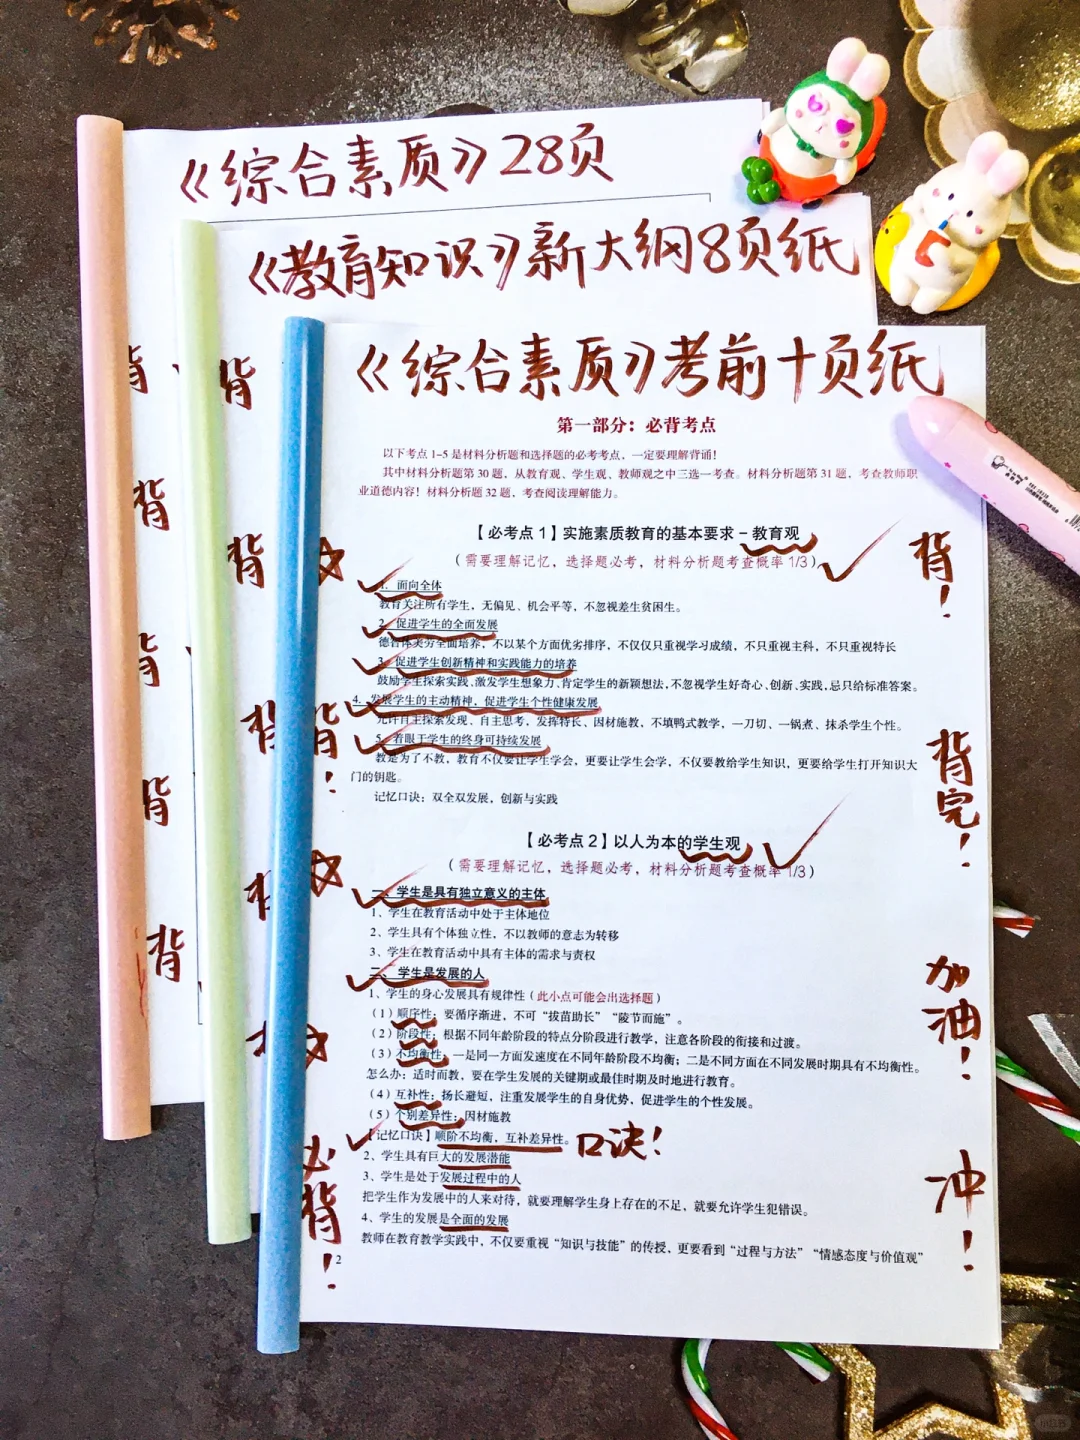 《综合素质》28页
《教育知识》新大纲8页纸
《综合素质》考前十页纸
第一部分：必背考点
以下考点 1-5 是材料分析题和选择题的必考考点，一定要理解背诵！
其中材料分析题第 30 题，从教育观、学生观、教师观之中三选一考查。材料分析题第 31 题，考查教师职
业道德内容！材料分析题 32 题，考查阅读理解能力。
【必考点 1】实施素质教育的基本要求－教育观
（需要理解记忆，选择题必考，材料分析题考查概率 1/3）
1. 面向全体
教育关注所有学生，无偏见、机会平等，不忽视差生贫困生。
2. 促进学生的全面发展
德智体美劳全面培养，不以某个方面优劣排序，不仅仅只重视学习成绩，不只重视主科，不只重视特长
3. 促进学生创新精神和实践能力的培养
鼓励学生探索实践、激发学生想象力、肯定学生的新颖想法，不忽视学生好奇心、创新、实践，忌只给标准答案。
4. 发展学生的主动精神，促进学生个性健康发展
允许自主探索发现、自主思考，发挥特长、因材施教，不填鸭式教学，一刀切、一锅煮、抹杀学生个性。
5. 着眼于学生的终身可持续发展
教是为了不教，教育不仅要让学生学会，更要让学生会学，不仅要教给学生知识，更要给学生打开知识大
门的钥匙。
记忆口诀：双全双发展，创新与实践
【必考点 2】以人为本的学生观
（需要理解记忆，选择题必考，材料分析题考查概率 1/3）
一、学生是具有独立意义的主体
1、学生在教育活动中处于主体地位
2、学生具有个体独立性，不以教师的意志为转移
3、学生在教育活动中具有主体的需求与责权
二、学生是发展的人
1、学生的身心发展具有规律性（此小点可能会出选择题）
（1）顺序性：要循序渐进，不可“拔苗助长”“陵节而施”。
（2）阶段性：根据不同年龄阶段的特点分阶段进行教学，注意各阶段的衔接和过渡。
（3）不均衡性：一是同一方面发速度在不同年龄阶段不均衡；二是不同方面在不同发展时期具有不均衡性。
怎么办：适时而教，要在学生发展的关键期或最佳时期及时地进行教育。
（4）互补性：扬长避短，注重发展学生的自身优势，促进学生的个性发展。
（5）个别差异性：因材施教
【记忆口诀】顺阶不均衡，互补差异性。口诀！
2、学生具有巨大的发展潜能
3、学生是处于发展过程中的人
把学生作为发展中的人来对待，就要理解学生身上存在的不足，就要允许学生犯错误。
4、学生的发展是全面的发展
教师在教育教学实践中，不仅要重视“知识与技能”的传授，更要看到“过程与方法”“情感态度与价值观”
2
背！
背完！
加油！
冲！
背！
必背！
背
背
背
背
背
背
背
背